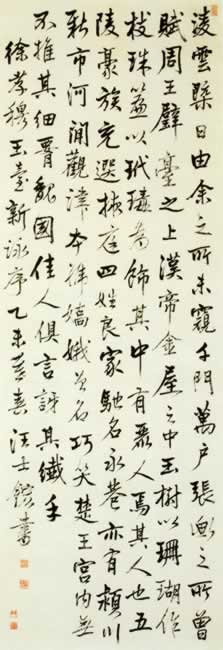 淩雲槩日由余之所未窺千門萬户張衡之所曾
賦周王璧臺之上漢帝金屋之中玉樹以珊瑚作
枝珠簾以玳瑁為飾其中有麗人焉其人也五
陵豪族充選掖庭四姓良家馳名永巷亦有潁川
新市河間觀津本稱嬌娥曾名巧笑楚王宮内無
不推其細腰魏國佳人俱言訝其纖手
徐孝穆玉臺新詠序乙未春汪士鋐書